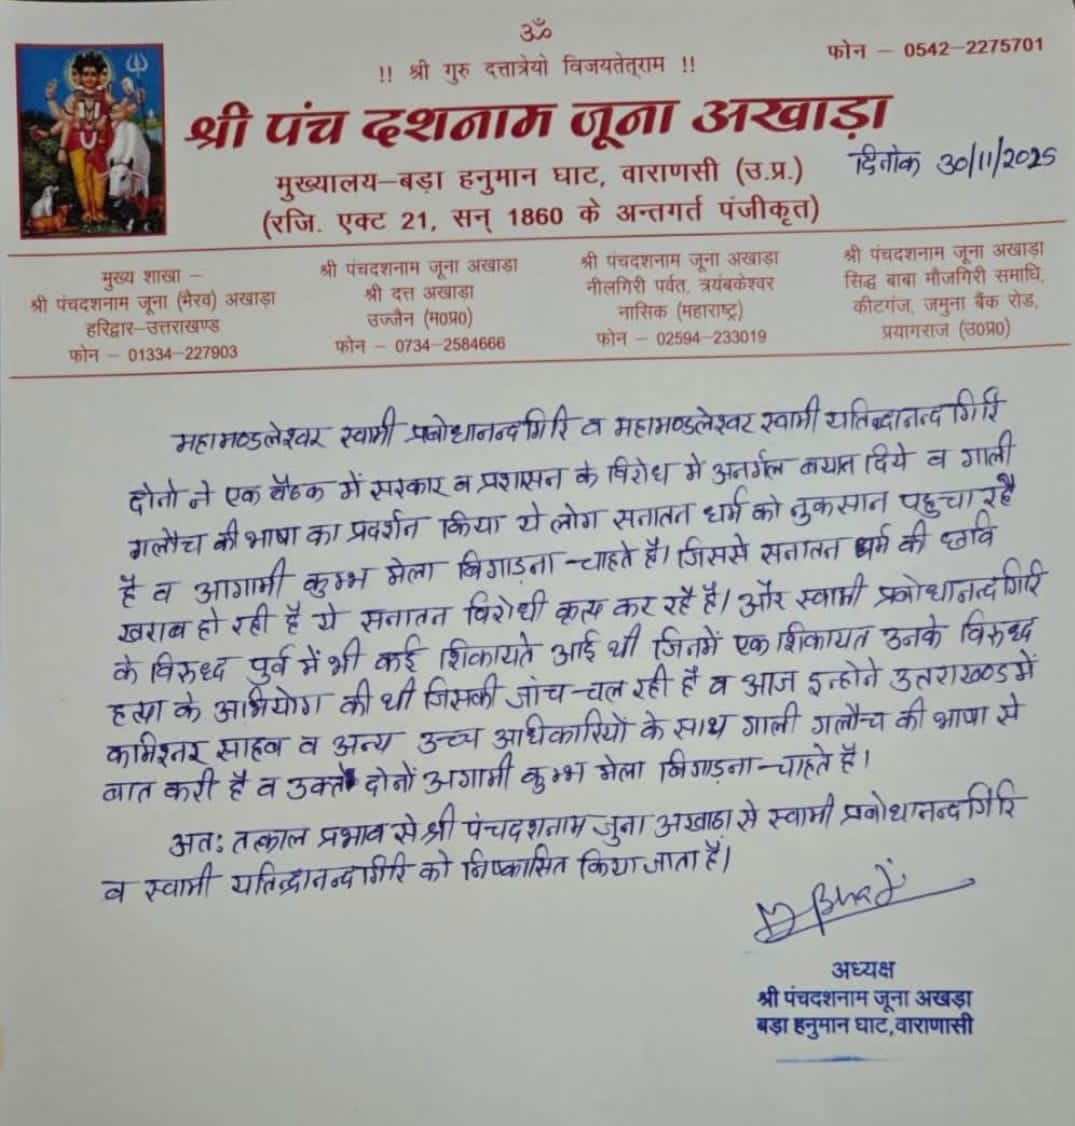 ॐ
!! श्री गुरु दत्तात्रेयो विजयतेत्राम !!
फोन – 0542-2275701
श्री पंच दशनाम जूना अखाड़ा
दिनांक 30/11/2025
मुख्यालय–बड़ा हनुमान घाट, वाराणसी (उ.प्र.)
(रजि. एक्ट 21, सन् 1860 के अन्तगर्त पंजीकृत)
मुख्य शाखा –
श्री पंचदशनाम जूना (भैरव) अखाड़ा
हरिद्वार–उत्तराखण्ड
फोन – 01334-227903
श्री पंचदशनाम जूना अखाड़ा
श्री दत्त अखाड़ा
उज्जैन (म0प्र0)
फोन – 0734-2584666
श्री पंचदशनाम जूना अखाड़ा
नीलगिरी पर्वत, त्रयंबकेश्वर
नासिक (महाराष्ट्र)
फोन – 02594-233019
श्री पंचदशनाम जूना अखाड़ा
सिद्ध बाबा मौजगिरी समाधि,
कीटगंज, जमुना बैंक रोड,
प्रयागराज (उ0प्र0)
महामण्डलेश्वर स्वामी प्रबोधानन्द गिरि व महामण्डलेश्वर स्वामी यतिन्द्रानन्द गिरि
दोनो ने एक बैठक में सरकार व प्रशासन के विरोध मे अनर्गल बयान दिये व गाली
गलौच की भाषा का प्रदर्शन किया ये लोग सनातन धर्म को नुकसान पहुचा रहे
है व आगामी कुम्भ मेला बिगाड़ना चाहते है। जिससे सनातन धर्म की छवि
खराब हो रही है ये सनातन विरोधी कृत्य कर रहै है। और स्वामी प्रबोधानन्द गिरि
के विरुध्द पुर्व में भी कई शिकायते आई थी जिनमें एक शिकायत उनके विरुध्द
हत्या के अभियोग की थी जिसकी जांच चल रही है व आज इन्होने उतराखण्ड में
कमिश्नर साहब व अन्य उच्च अधिकारियों के साथ गाली गलौच की भाषा से
बात करी है व उक्त दोनों अगामी कुम्भ मेला बिगाड़ना चाहते है।
अतः तत्काल प्रभाव से श्री पंचदशनाम जुना अखाड़ा से स्वामी प्रबोधानन्द गिरि
व स्वामी यतिन्द्रानन्द गिरि को निष्कासित किया जाता है।
अध्यक्ष
श्री पंचदशनाम जूना अखड़ा
बड़ा हनुमान घाट, वाराणसी